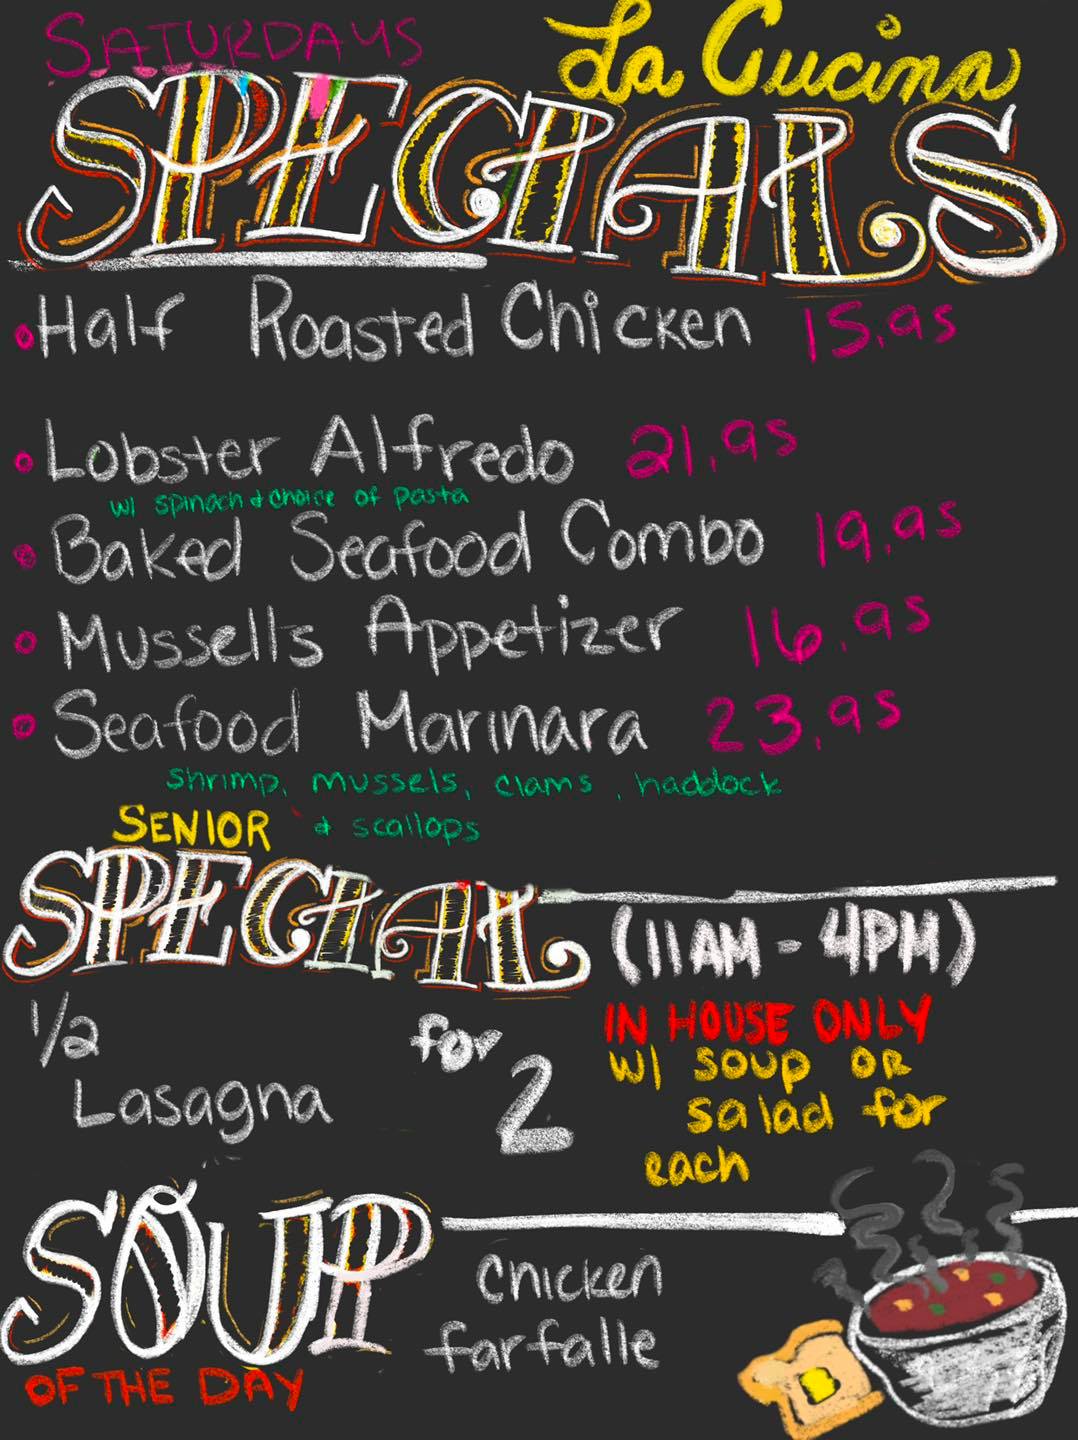 SATURDAYS
La Cucina
SPECIALS
Half Roasted Chicken 15.95
Lobster Alfredo 21.95
w/ spinach & choice of pasta
Baked Seafood Combo 19.95
Mussells Appetizer 16.95
Seafood Marinara 23.95
shrimp, mussels, clams, haddock
& scallops
SENIOR
SPECIAL
(11AM - 4PM)
1/2
Lasagna
for
2
IN HOUSE ONLY
w/ soup OR
salad for
each
SOUP
OF THE DAY
chicken
farfalle